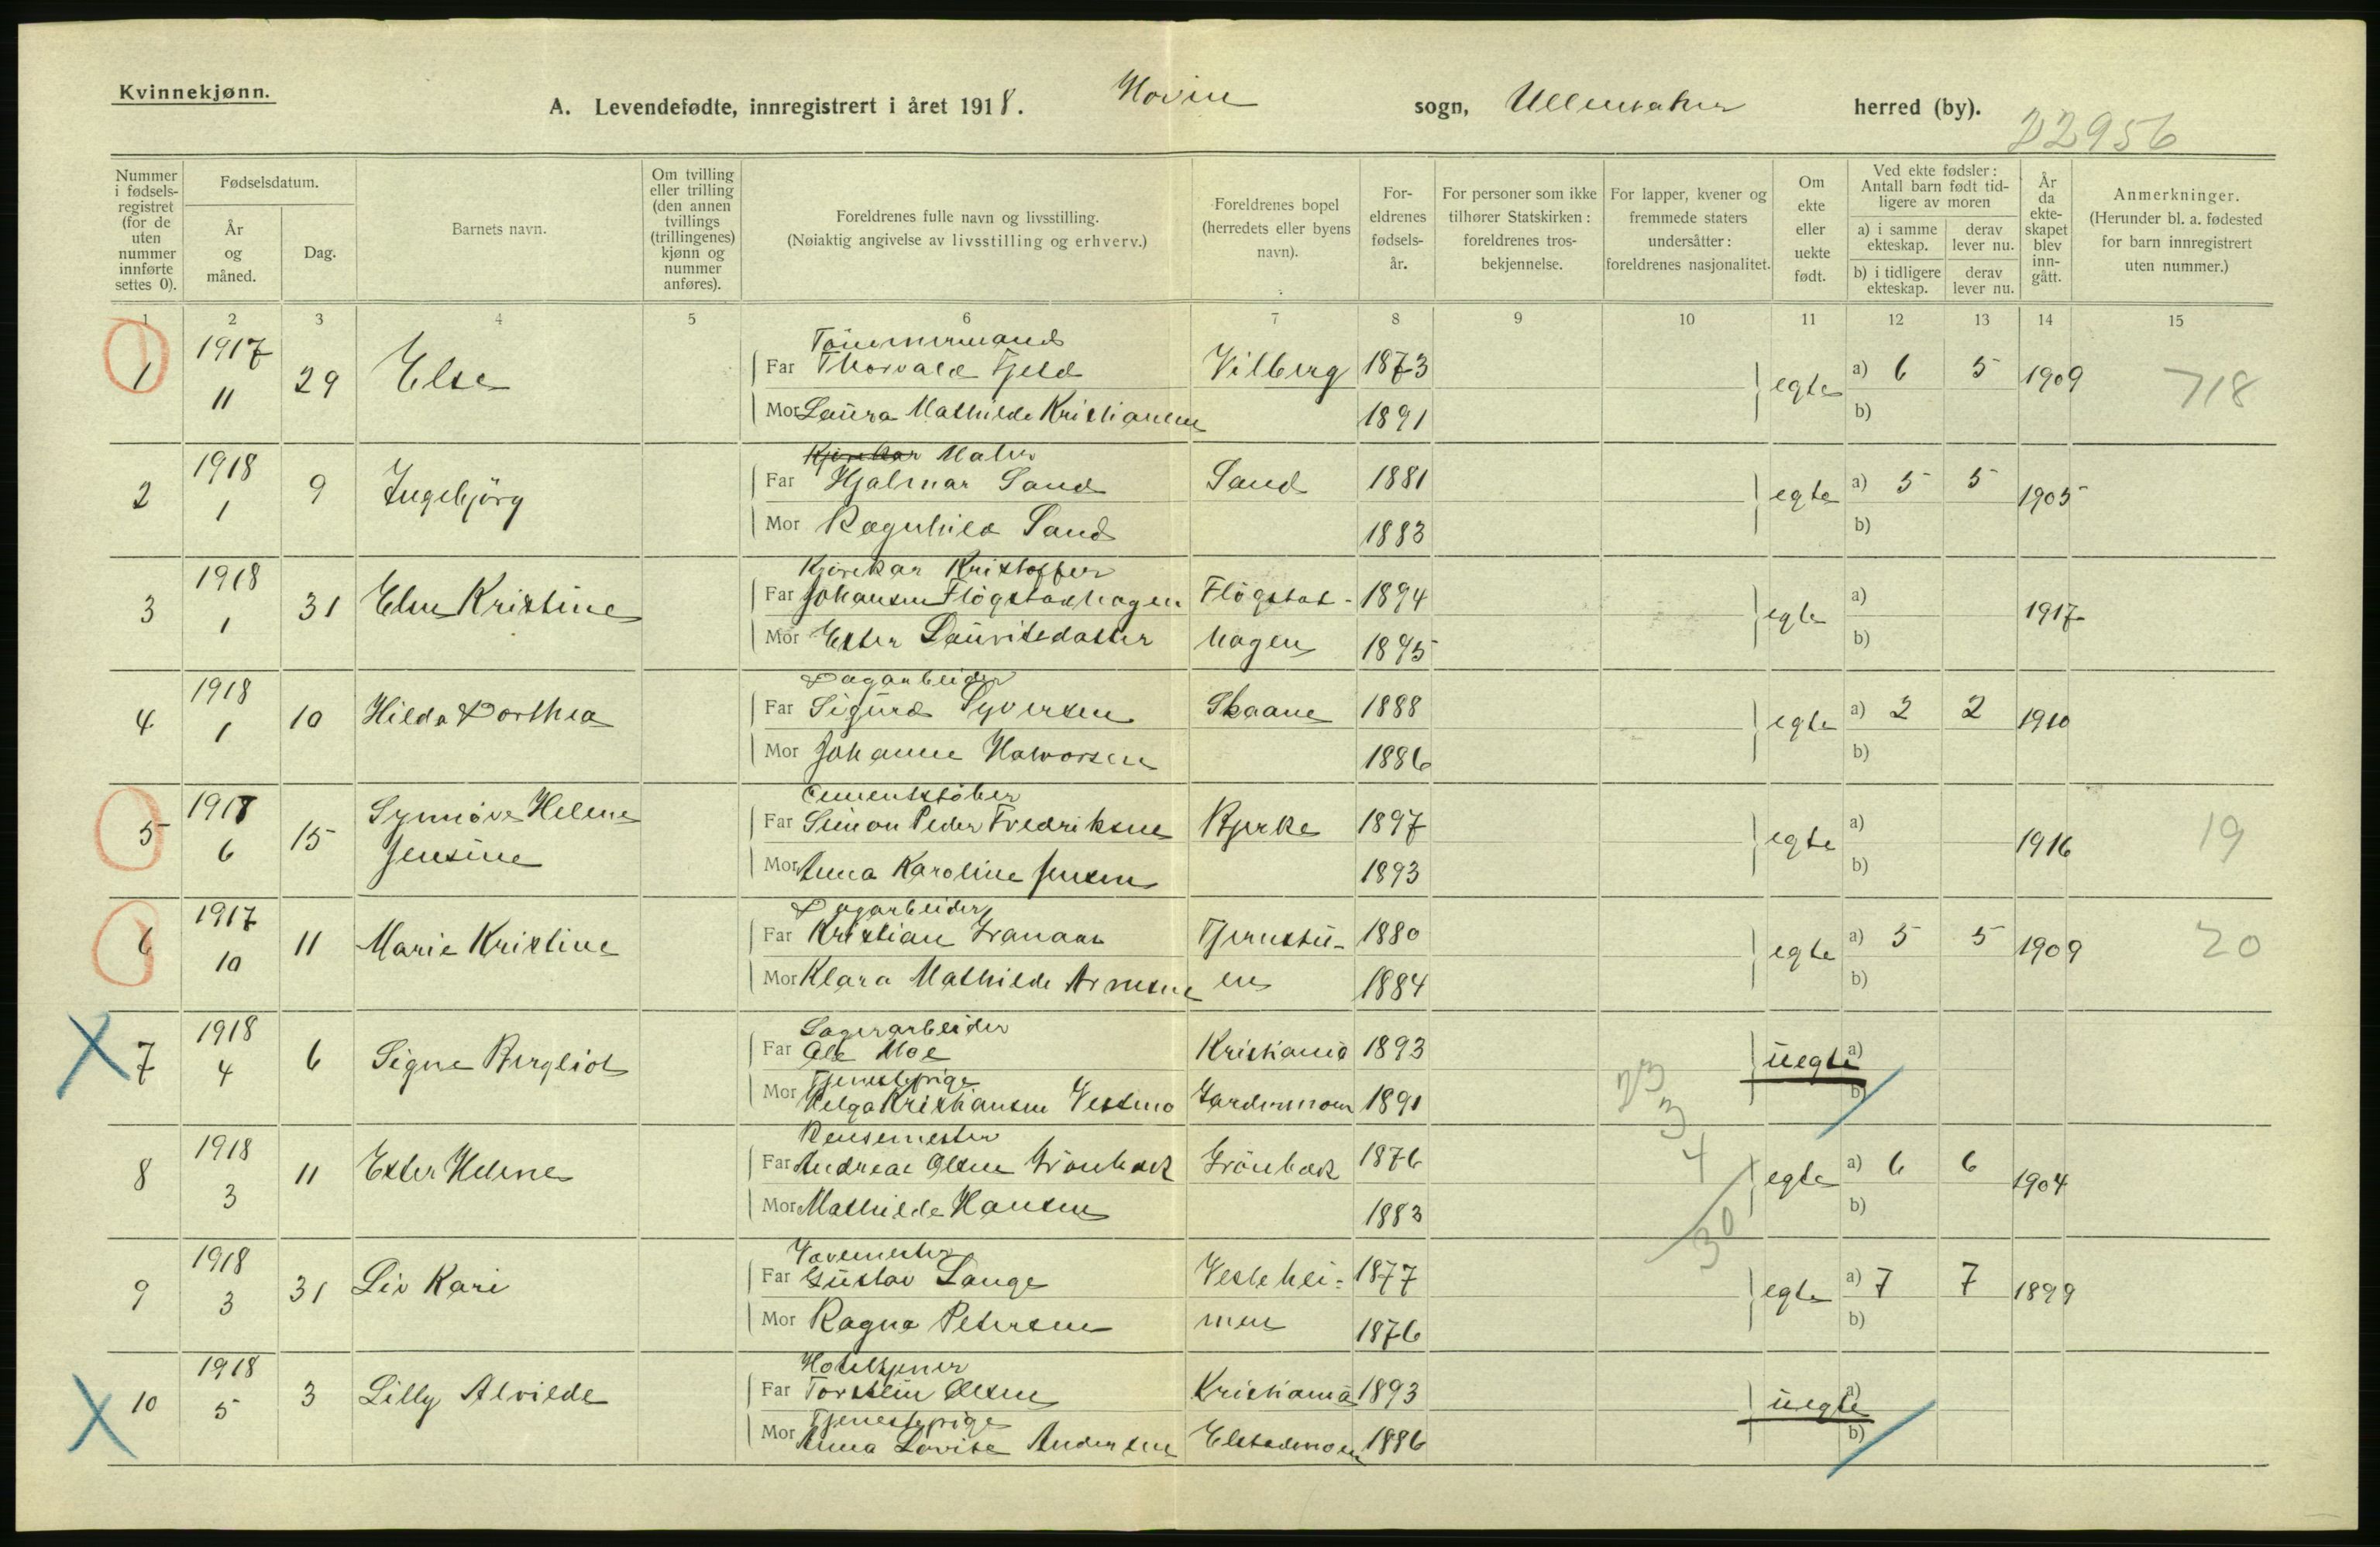 Kvinnekjønn.
A. Levendefødte, innregistrert i året 1918. Hovin sogn, Ullensaker herred (by).
22956
Nummer i fødsels-registret (for de uten nummer innførte settes 0).
Fødselsdatum.
År og måned.
Dag.
Barnets navn.
Om tvilling eller trilling (den annen tvillings (trillingenes) kjønn og nummer anføres).
Foreldrenes fulle navn og livsstilling.
(Nøiaktig angivelse av livsstilling og erhverv.)
Foreldrenes bopel (herredets eller byens navn).
For-eldrenes fødsels-år.
For personer som ikke tilhører Statskirken: foreldrenes tros-bekjennelse.
For lapper, kvener og fremmede staters undersåtter: foreldrenes nasjonalitet.
Om ekte eller uekte født.
Ved ekte fødsler: Antall barn født tid-ligere av moren
a) i samme ekteskap.
derav lever nu.
b) i tidligere ekteskap.
derav lever nu.
År da ekte-skapet blev inn-gått.
Anmerkninger.
(Herunder bl. a. fødested for barn innregistrert uten nummer.)
1 2 3 4 5 6 7 8 9 10 11 12 13 14 15
1917 Tömmermand
1 11 29 Else Far Thorvald Fjeld Vilberg 1873 egte a) 6 5 1909 718
Mor Laura Mathilde Kristiansen 1891 b)
1918 Kjørekar Maler
2 1 9 Ingebjörg Far Hjalmar Sand Sand 1881 egte a) 5 5 1905
Mor Ragnhild Sand 1883 b)
1918 Kjørekar Kristoffer
3 1 31 Else Kristine Far Johansen Flögstadhagen Flögstat- 1894 egte a) 1917
Mor Ester Lauritsdatter hagen 1895 b)
1918 Dagarbeider
4 1 10 Hilda Dorthea Far Sigurd Syversen Skaane 1888 egte a) 2 2 1910
Mor Johanne Halvorsen 1886 b)
1917 Cementstöber
5 6 15 Synnöve Helene Far Simon Peder Fredriksen Bjerke 1897 egte a) 1916 19
Jensine Mor Anna Karoline Jensen 1893 b)
1917 Dagarbeider
6 10 11 Marie Kristine Far Kristian Granaas Tjernstu- 1880 egte a) 5 5 1909 20
Mor Klara Mathilde Arnesen en 1884 b)
1918 Lagerarbeider
7 4 6 Signe Bergliot Far Ole Moe Kristiania 1893 uegte a)
Tjenestepige
Mor Helga Kristiansen Vestmo Gardermoen 1891 b)
23
3
4
30
1918 Rensemester
8 3 11 Ester Helene Far Andreas Olsen Grönbæk Grönbæk 1876 egte a) 6 6 1904
Mor Mathilde Hansen 1883 b)
1918 Vavemester
9 3 31 Liv Kari Far Gustav Lange Vestehei- 1877 egte a) 7 7 1899
Mor Ragna Petersen men 1876 b)
1918 Hoteltjener
10 5 3 Lilly Alvilde Far Torstein Olsen Kristiania 1893 uegte a)
Tjenestepige
Mor Anna Lovise Andersen Elstadmoen 1886 b)